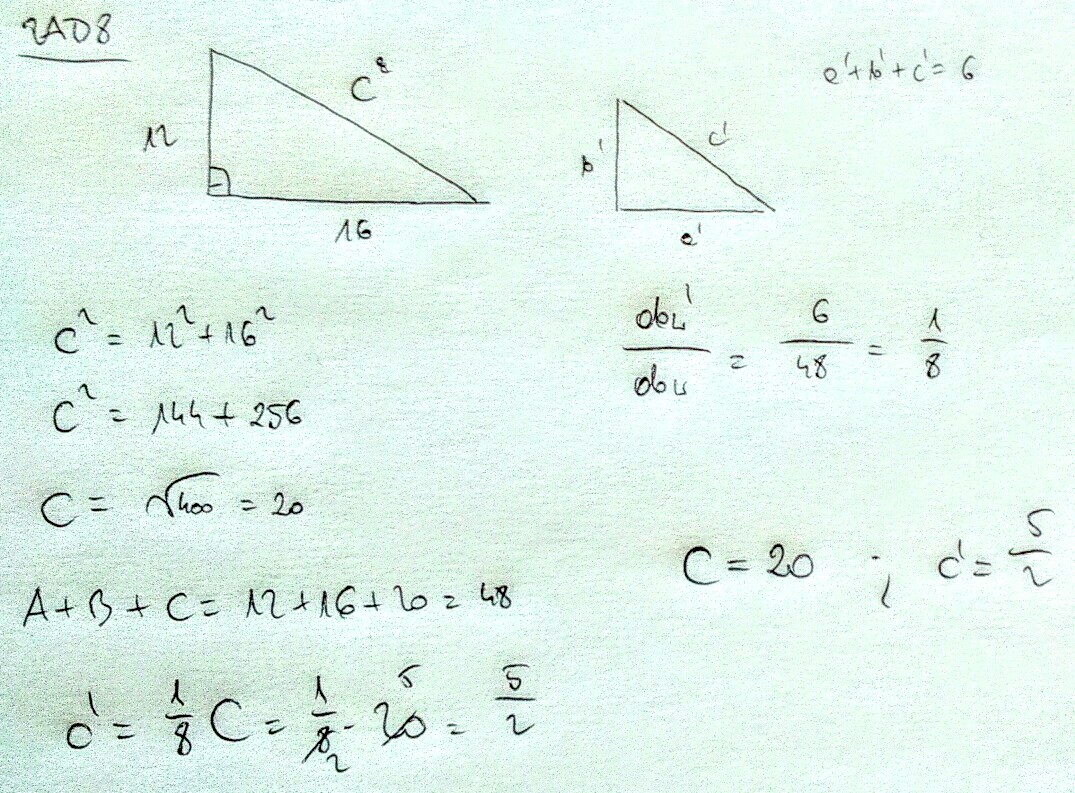 ZAD8
12
C
16
a'+b'+c'=6
b'
c'
a'
c² = 12²+16²
C² = 144+256
C = √400 = 20
A+B+C = 12+16+20 = 48
c' = 1/8 C = 1/8 · 20 = 5/2
5
2
obu'/obu = 6/48 = 1/8
C = 20 ; c' = 5/2